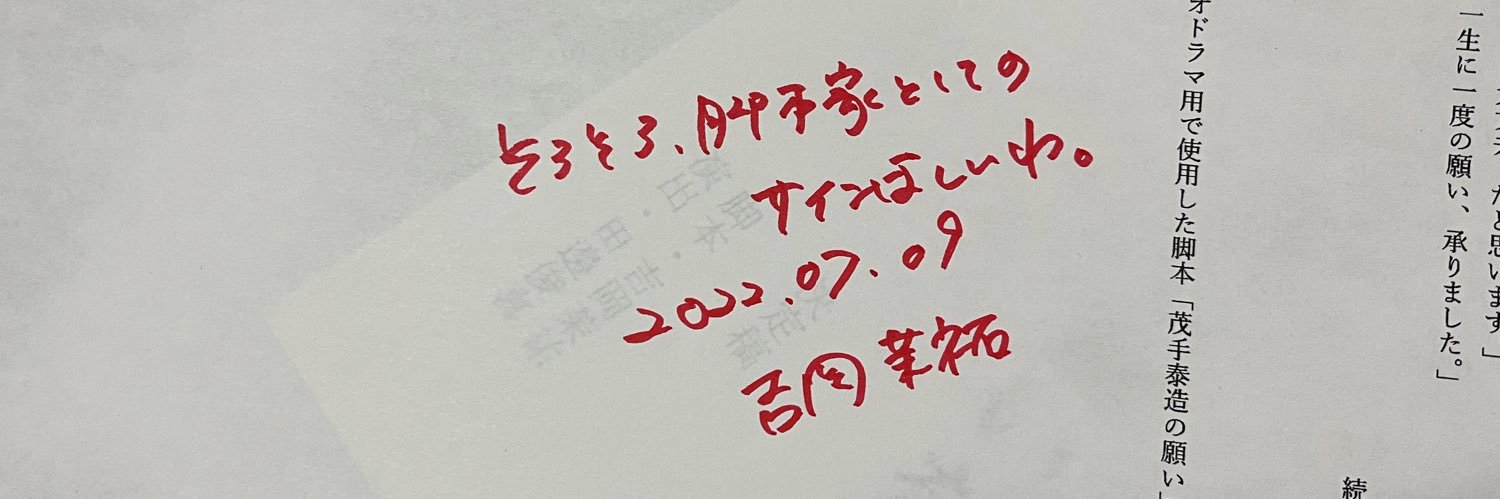 そろそろ、脚本家としての
サインほしいわ。
2022.07.09
吉岡茉祐
だと思います」
一生に一度の願い、承りました。」
続
オドラマ用で使用した脚本「茂手泰造の願い」
脚本・吉岡茉祐